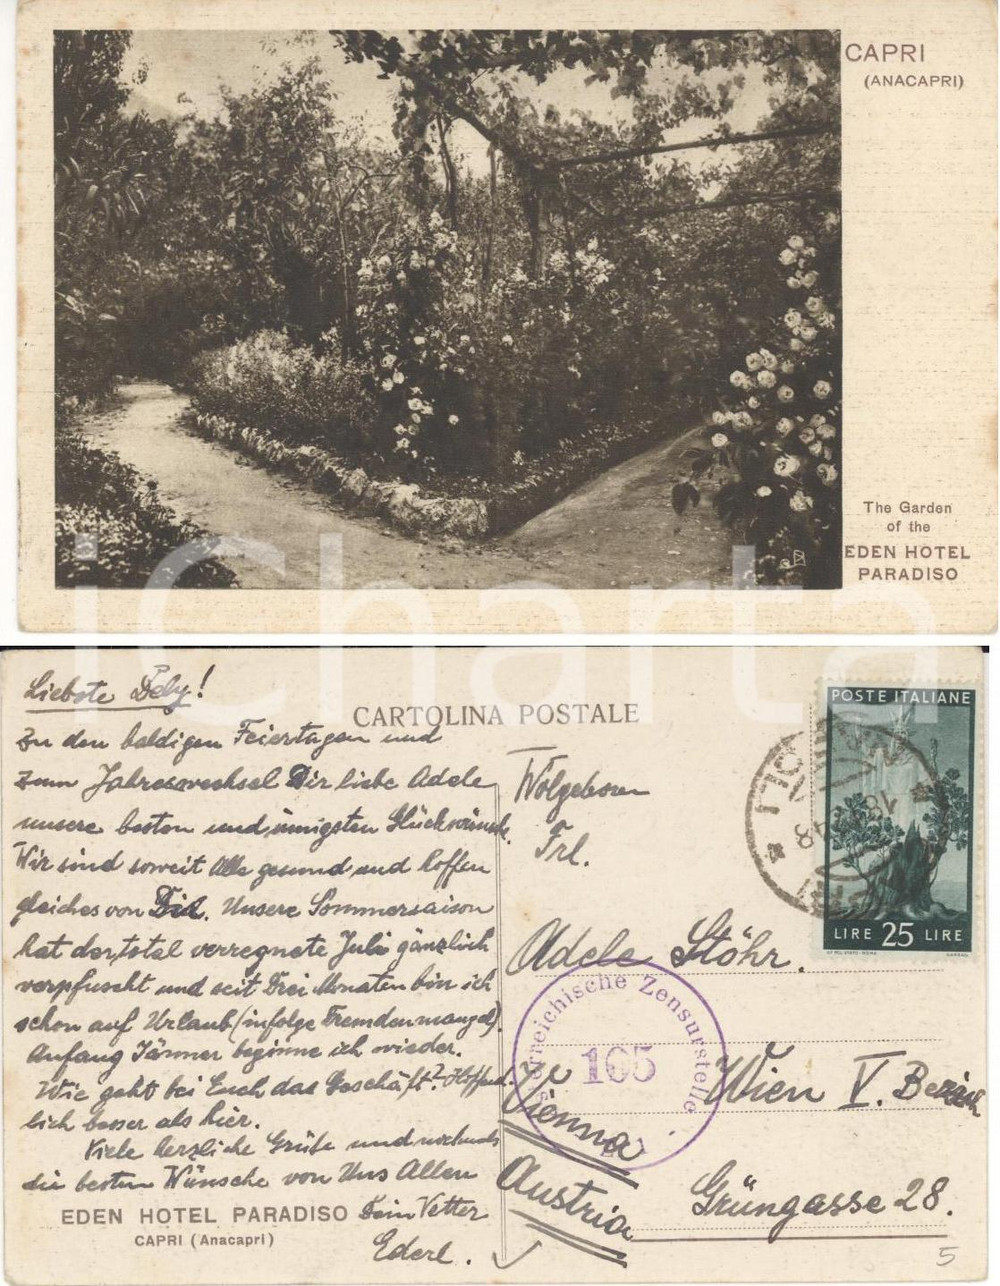 CAPRI
(ANACAPRI)
The Garden
of the
EDEN HOTEL
PARADISO
iCharta
Liebste Dely!
CARTOLINA POSTALE
Zu den baldigen Feiertagen und
zum Jahreswechsel Dir liebe Adele
unsere besten und innigsten Glückwünsche.
Wir sind soweit Alle gesund und hoffen
gleiches von Dir. Unsere Sommersaison
hat der total verregnete Juli gänzlich
verpfuscht und seit Drei Monaten bin ich
schon auf Urlaub (infolge Fremdenmangel).
Anfang Jänner beginne ich wieder.
Wie geht bei Euch das Geschäft? Hoffent-
lich besser als hier.
Viele herzliche Grüße und nochmals
die besten Wünsche von Uns Allen
Dein Vetter
Ederl.
EDEN HOTEL PARADISO
CAPRI (Anacapri)
POSTE ITALIANE
LIRE 25 LIRE
Wolgeboren
Frl.
Adele Stöhr.
Österreichische Zensurstelle
165
Wien V. Bezirk
Vienna
Austria
Grüngasse 28.
5